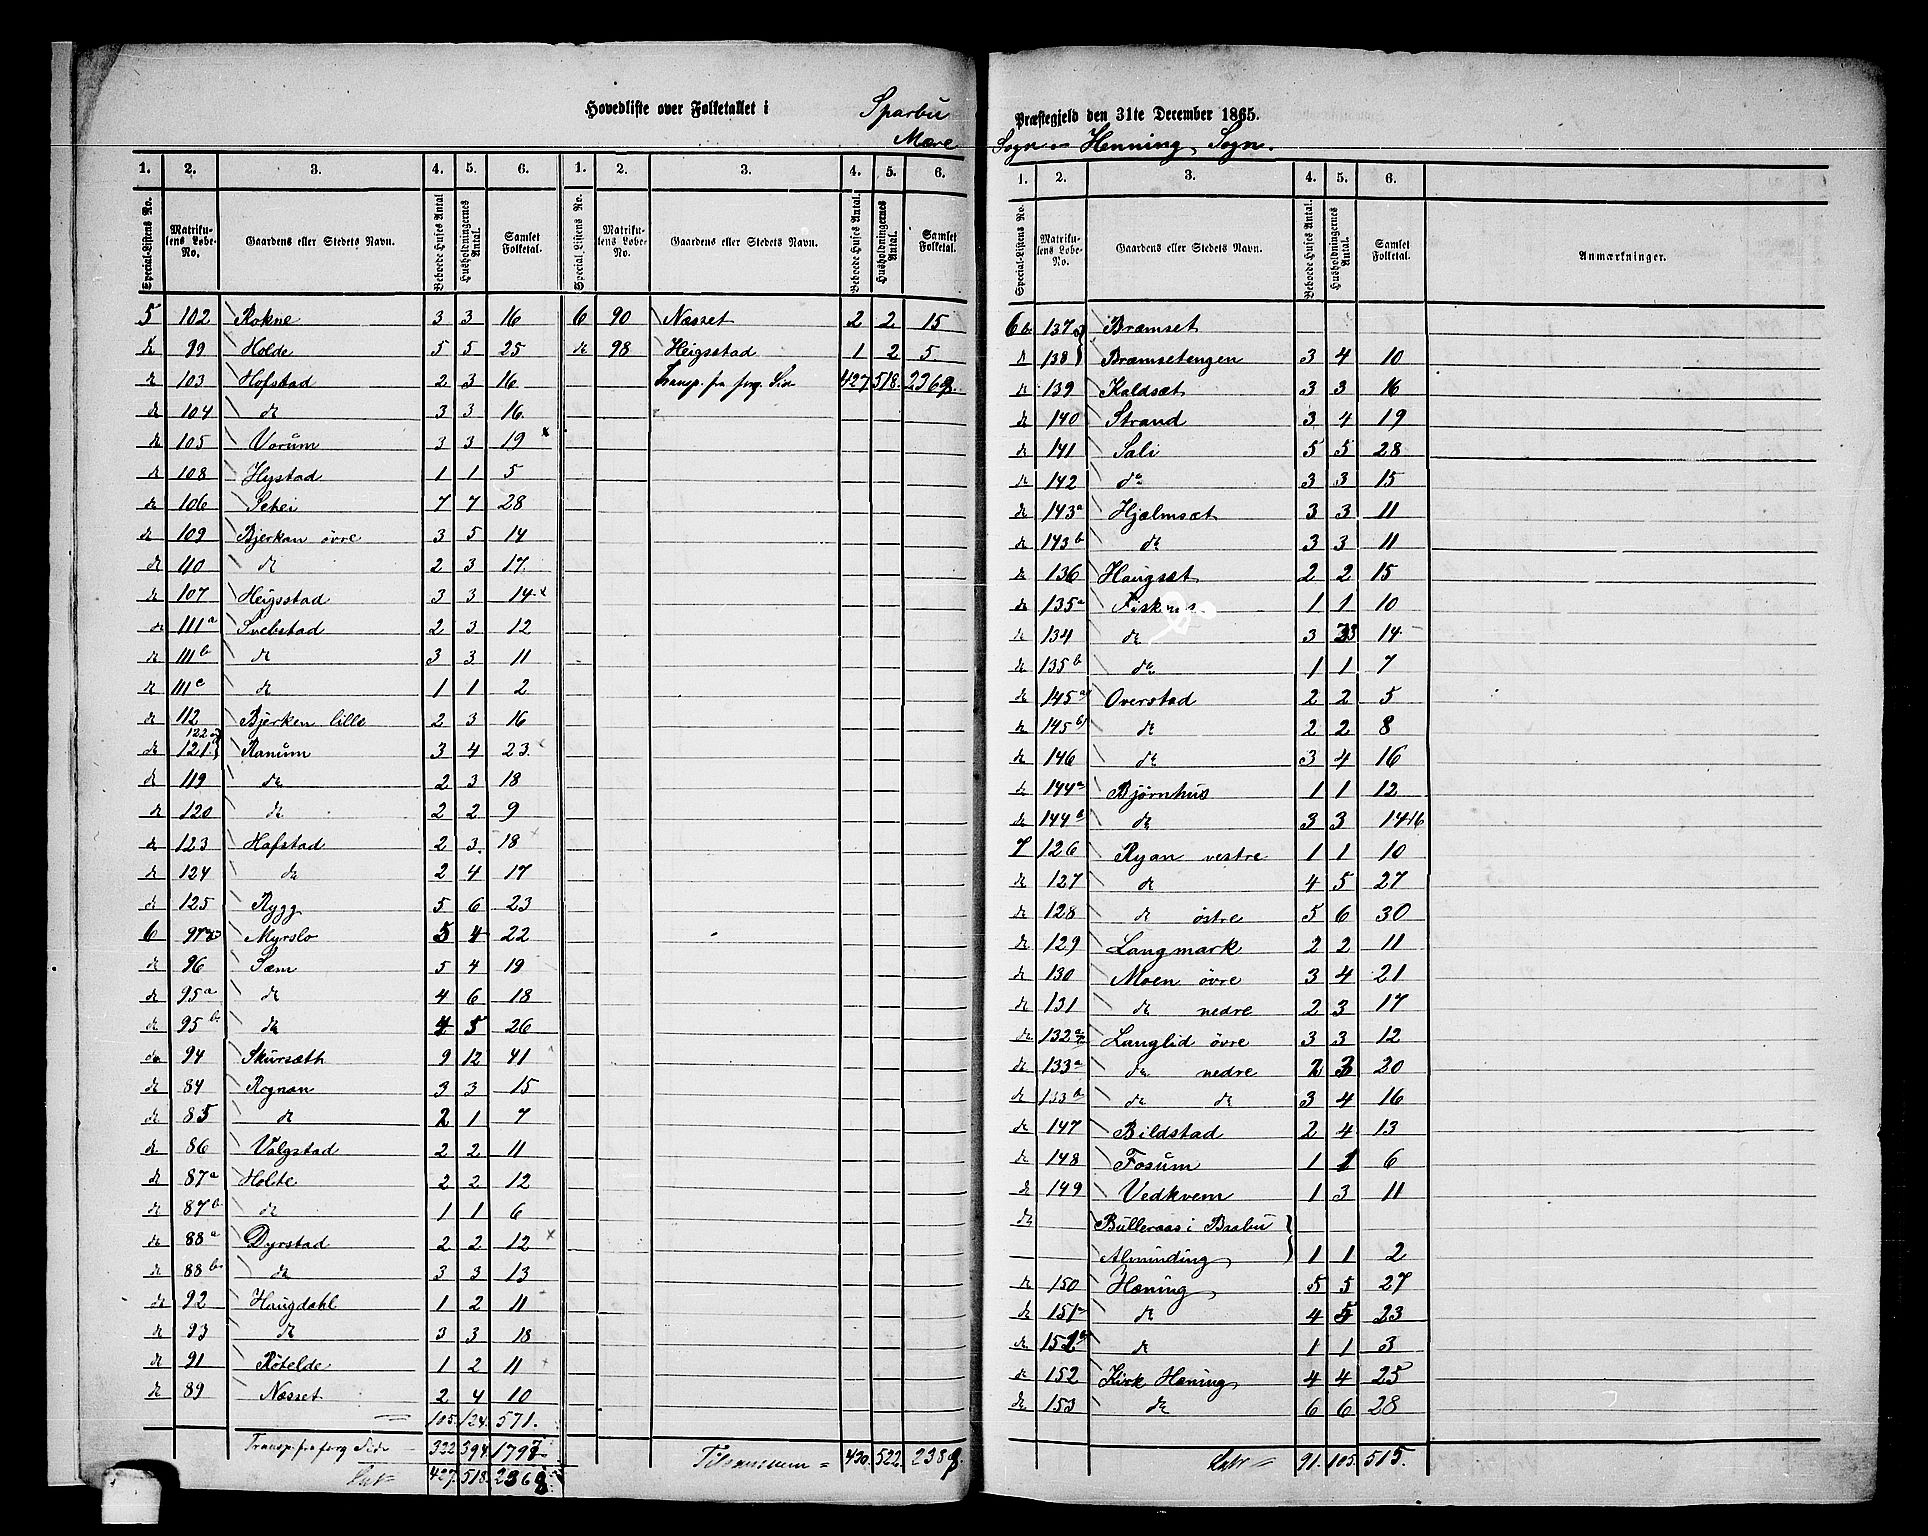 Hovedliste over Folketallet i Sparbu Præstegjeld den 31te December 1865.
Mære Sogn Henning Sogn.
1. 2. 3. 4. 5. 6. 1. 2. 3. 4. 5. 6.
Special-Listens No. Matrikulens Løbe-No. Gaardens eller Stedets Navn. Beboede Huses Antal Husholdningernes Antal. Samlet Folketal. Special Listens No. Matrikulens Løbe-No. Gaardens eller Stedets Navn. Beboede Huses Antal. Husholdningernes Antal. Samlet Folketal.
5 102 Rokne 3 3 16 6 90 Næsset 2 2 15
do 99 Holde 5 5 25 do 98 Heigsstad 1 2 5
do 103 Hofstad 2 3 16 Transp. fra forg. Side 427 518 2368
do 104 do 3 3 16
do 105 Vorum 3 3 19
do 108 Hystad 1 1 5
do 106 Schei 7 7 28
do 109 Bjerkan øvre 3 5 14
do 110 do 2 3 17
do 107 Heigsstad 3 3 14
do 111a Svebstad 2 3 12
do 111b do 3 3 11
do 111c do 1 1 2
do 112 Bjerken lille 2 3 16
122
do 121 Ranum 3 4 23
do 119 do 2 3 18
do 120 do 2 2 9
do 123 Hafstad 2 3 18
do 124 do 2 4 17
do 125 Rygg 5 6 23
6 97 Myrslo 5 4 22
do 96 Sem 5 4 19
do 95a do 4 6 18
do 95b do 4 5 26
do 94 Skursæth 9 12 41
do 84 Rognan 3 3 15
do 85 do 2 1 7
do 86 Valgstad 2 2 11
do 87a Holte 2 2 12
do 87b do 1 1 6
do 88a Dyrstad 2 2 12
do 88b do 3 3 13
do 92 Haugdahl 1 2 11
do 93 do 3 3 18
do 91 Røtelde 1 2 11
do 89 Næsset 2 4 10
105. 124. 571.
Transp. fra forg Side 322 394 1797 Tilsammen = 430 522 2388
Lat 427. 518. 2368
1. 2. 3. 4. 5. 6.
Special-Listens No. Matrikulens Løbe-No. Gaardens eller Stedets Navn. Beboede Huses Antal. Husholdningernes Antal. Samlet Folketal. Anmærkninger.
6b 137 Bræmset
do 138 Bræmsetengen 3 4 10
do 139 Kaldsæt 3 3 16
do 140 Strand 3 4 19
do 141 Sali 5 5 28
do 142 do 3 3 15
do 143a Hjælmsæt 3 3 11
do 143b do 3 3 11
do 136 Haugsæt 2 2 15
do 135a Fisknes 1 1 10
do 134 do 3 3 14
do 135b do 1 1 7
do 145a Overstad 2 2 5
do 145b do 2 2 8
do 146 do 3 4 16
do 144a Bjørnhus 1 1 12
do 144b do 3 3 14 16
7 126 Ryan vestre 1 1 10
do 127 do 4 5 27
do 128 do østre 5 6 30
do 129 Langmark 2 2 11
do 130 Moen øvre 3 4 21
do 131 do nedre 2 3 17
do 132 Langlid øvre 3 3 12
do 133a do nedre 2 3 20
do 133b do do 3 4 16
do 147 Bildstad 2 4 13
do 148 Fosum 1 1 6
do 149 Vedkvem 1 3 11
do Bulleraas i Brabu
Alminding 1 1 2
do 150 Hæning 5 5 27
do 151 do 4 5 23
do 151 do 1 1 3
do 152 Kirk Hæning 4 4 25
do 153 do 6 6 28
Lat 91. 105. 515.